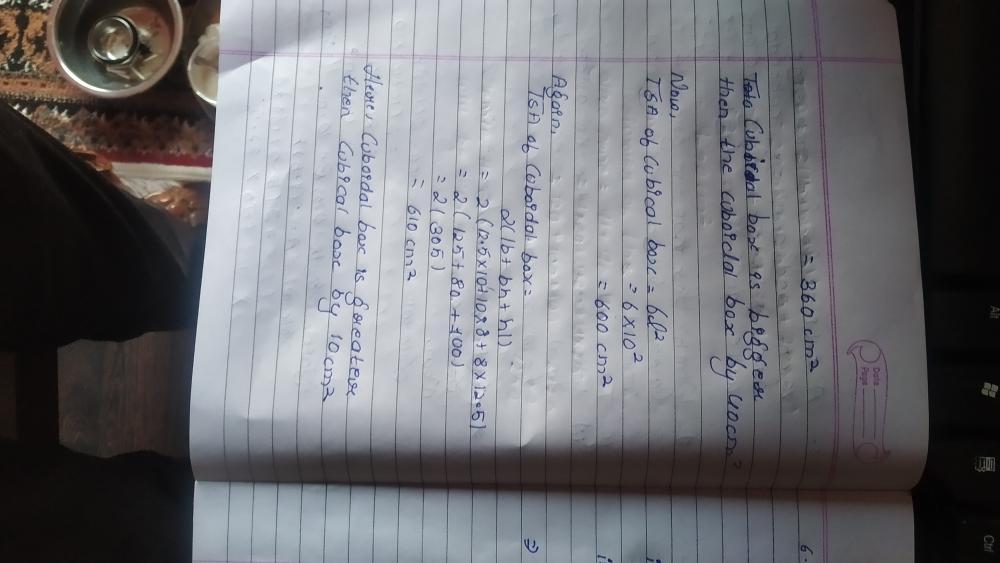 Date
Page
= 360 cm²
Cubical box is bigger
then the cuboidal box by 40cm²
Now,
TSA of Cubical box = 6l²
= 6 × 10²
= 600 cm²
Again,
TSA of Cuboidal box =
2(lb + bh + hl)
= 2 (12.5×10+10×8+8×12.5)
= 2 (125 + 80 + 100)
= 2 (305)
= 610 cm²
Hence, Cuboidal box is greater
then Cubical box by 10 cm²
6.
i
i
⇒
Alt
Ctrl